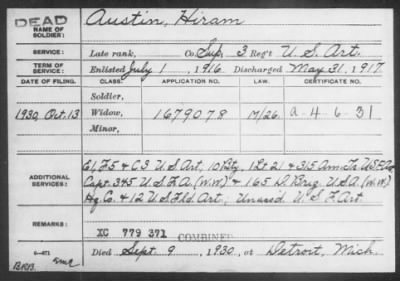 DEAD
NAME OF SOLDIER: Austin, Hiram
SERVICE: Late rank, Co. Sup. 3 Reg't U. S. Art.
TERM OF SERVICE: Enlisted July 1, 1916 Discharged May 31, 1917
DATE OF FILING. CLASS. APPLICATION NO. LAW. CERTIFICATE NO.
Soldier,
1930, Oct. 13 Widow, 1679078 M/26. a-4-6-31
Minor,
ADDITIONAL SERVICES: E, F5 & C3 U S Art, 10 Bty, 1 Lt 21 & 315 Am. Tn
Capt. 345 U. S. F. A. (W.W.) & 165 D. Brig. U.S.A. (W.W.)
Hq. Co. & 12 U S Fld. Art., Unassd. U. S. F. Art.
REMARKS:
XC 779 371 COMBINED
Died Sept. 9, 1930, at Detroit, Mich.